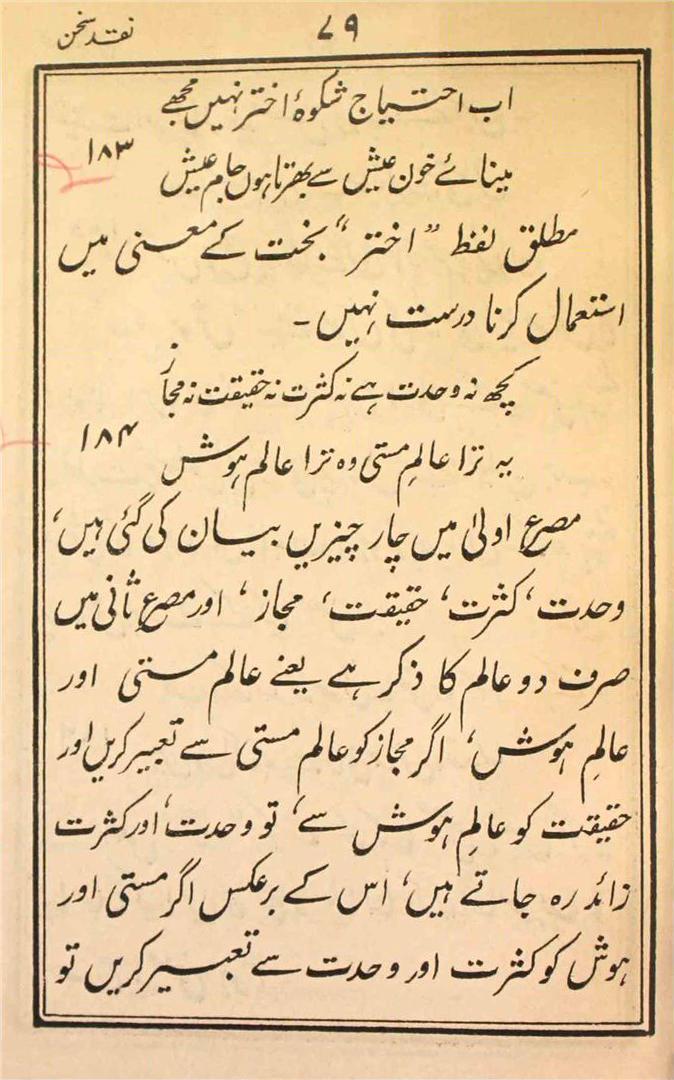 نقد سخن
۷۹
اب احتیاج شکوۂ اختر نہیں مجھے
۱۸۳
مینائے خون عیش سے بھرتا ہوں جام عیش
مطلق لفظ "اختر" بخت کے معنی میں
استعمال کرنا درست نہیں۔
کچھ نہ وحدت ہے نہ کثرت نہ حقیقت نہ مجاز
۱۸۴
یہ ترا عالمِ مستی وہ ترا عالم ہوش
مصرع اولیٰ میں چار چیزیں بیان کی گئی ہیں،
وحدت، کثرت، حقیقت، مجاز، اور مصرع ثانی میں
صرف دو عالم کا ذکر ہے یعنے عالم مستی اور
عالمِ ہوش، اگر مجاز کو عالم مستی سے تعبیر کریں اور
حقیقت کو عالمِ ہوش سے، تو وحدت، اور کثرت
زائد رہ جاتے ہیں، اس کے برعکس اگر مستی اور
ہوش کو کثرت اور وحدت سے تعبیر کریں تو